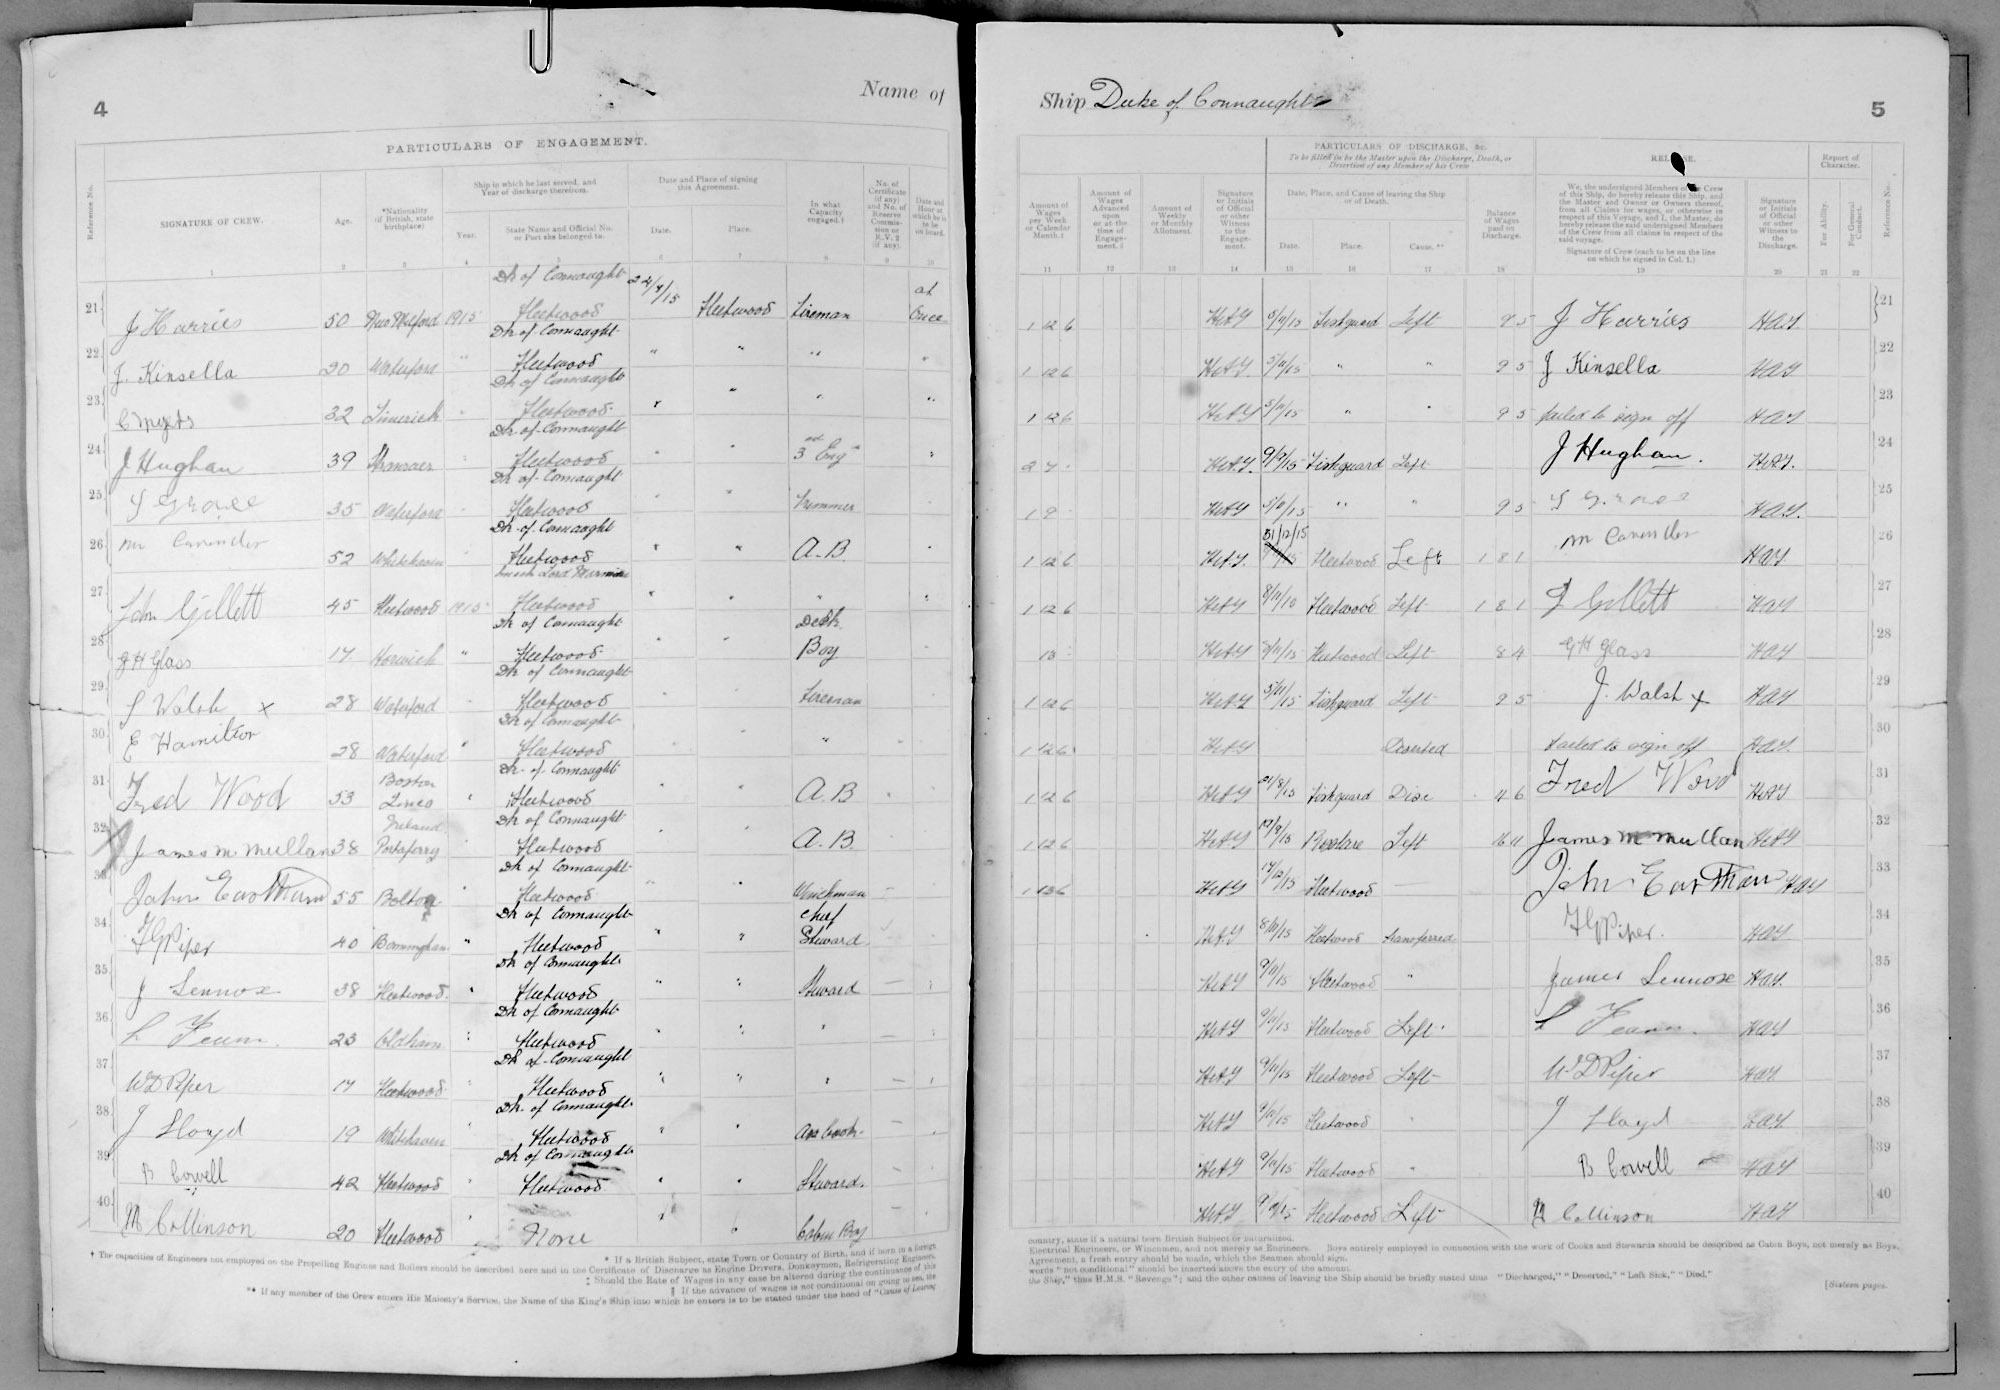 4
Name of
PARTICULARS OF ENGAGEMENT.
Reference No.
SIGNATURE OF CREW.
Age.
*Nationality (if British, state birthplace)
Ship in which he last served, and Year of discharge therefrom.
Year.
State Name and Official No. or Port she belonged to.
Date and Place of signing this Agreement.
Date.
Place.
In what Capacity engaged.†
No. of Certificate (if any) and No. of Reserve Commission or R.V.2 (if any).
Date and Hour at which he is to be on board.
1 2 3 4 5 6 7 8 9 10
21 J Harries 50 New Milford 1915 Dk of Connaught Fleetwood 24/8/15 Fleetwood Fireman at Once
22 J. Kinsella 20 Waterford " Dk of Connaught Fleetwood " " " "
23 C Myers 32 Limerick " Dk of Connaught Fleetwood " " " "
24 J Hughan 39 Stranraer " Dk of Connaught Fleetwood " " 3rd Engr "
25 Grace 35 Waterford " Dk of Connaught Fleetwood " " Trimmer "
26 52 Whitehaven " Dk of Connaught Fleetwood " " A.B "
27 John Gillett 45 Fleetwood 1915 Fleetwood " " " "
28 G H Glass 17 Horwich " Dk of Connaught Fleetwood " " Deck Boy "
29 Walsh x 28 Waterford " Dk of Connaught Fleetwood " " Fireman "
30 E Hamilton 28 Waterford " Dk of Connaught Fleetwood " " " "
31 Fred Wood 53 Boston Lincs " Dk of Connaught Fleetwood " " A.B "
32 James McMullan 38 Ireland Portaferry Dk of Connaught Fleetwood " " A.B "
33 John Eastham 55 Bolton " Dk of Connaught Fleetwood " " Winchman
34 F G Piper 40 Birmingham " Dk of Connaught Fleetwood " " Chief Steward
35 J Lennox 38 Fleetwood " Dk of Connaught Fleetwood " " Steward
36 23 Oldham " Dk of Connaught Fleetwood " " "
37 W D Piper 17 Fleetwood " Dk of Connaught Fleetwood " " "
38 J Lloyd 19 Whitehaven " Dk of Connaught Fleetwood " " Ass Cook
39 B Cowell 42 Fleetwood " Dk of Connaught Fleetwood " " Steward
40 Collinson 20 Fleetwood " None " " Cabin Boy
* If a British Subject, state Town or Country of Birth, and if born in a foreign
† The capacities of Engineers not employed on the Propelling Engines and Boilers should be described here and in the Certificate of Discharge as Engine Drivers, Donkeymen, Refrigerating Engineers,
‡ Should the Rate of Wages in any case be altered during the continuance of this
§ If the advance of wages is not conditional on going to sea, the
** If any member of the Crew enters His Majesty's Service, the Name of the King's Ship into which he enters is to be stated under the head of "Cause of Leaving
Ship Duke of Connaught
5
PARTICULARS OF DISCHARGE, &c.
To be filled in by the Master upon the Discharge, Death, or Desertion of any Member of his Crew
RELEASE.
Report of Character.
Amount of Wages per Week or Calendar Month.‡
Amount of Wages Advanced upon or at the time of Engagement.§
Amount of Weekly or Monthly Allotment.
Signature or Initials of Official or other Witness to the Engagement.
Date, Place, and Cause of leaving the Ship or of Death.
Date.
Place.
Cause.**
Balance of Wages paid on Discharge.
We, the undersigned Members of the Crew of this Ship, do hereby release this Ship, and the Master and Owner or Owners thereof, from all Claims for wages, or otherwise in respect of this Voyage, and I, the Master, do hereby release the said undersigned Members of the Crew from all claims in respect of the said voyage.
Signature of Crew (each to be on the line on which he signed in Col. 1.)
Signature or Initials of Official or other Witness to the Discharge.
For Ability.
For General Conduct.
Reference No.
11 12 13 14 15 16 17 18 19 20 21 22
1 12 6 HAY 5/11/15 Fishguard Left 9 5 J Harries HAY 21
1 12 6 HAY 5/11/15 " " 9 5 J Kinsella HAY 22
1 12 6 HAY 5/11/15 " " 9 5 failed to sign off HAY 23
HAY Fishguard Left J Hughan. HAY 24
1 9 HAY 5/11/15 " " 9 5 Grace HAY 25
1 12 6 HAY 31/12/15 Fleetwood Left 1 8 1 HAY 26
1 12 6 HAY 8/11/15 Fleetwood Left 1 8 1 J Gillett HAY 27
HAY Fleetwood Left 8 4 G H Glass HAY 28
1 12 6 HAY 5/11/15 Fishguard Left 9 5 J. Walsh x HAY 29
1 12 6 HAY Deserted failed to sign off HAY 30
1 12 6 HAY 31/8/15 Fishguard Disc 4 6 Fred Wood HAY 31
1 12 6 HAY Rosslare Left 16 11 James McMullan HAY 32
HAY Fleetwood — John Eastham HAY 33
HAY Fleetwood transferred F G Piper. HAY 34
HAY 9/11/15 Fleetwood " James Lennox HAY 35
HAY 9/11/15 Fleetwood Left HAY 36
HAY 9/11/15 Fleetwood Left W D Piper HAY 37
HAY 9/11/15 Fleetwood " J Lloyd HAY 38
HAY 9/11/15 Fleetwood " B Cowell HAY 39
HAY Fleetwood Left Collinson HAY 40
country, state if a natural born British Subject or naturalized.
Electrical Engineers, or Winchmen, and not merely as Engineers. Boys entirely employed in connection with the work of Cooks and Stewards should be described as Cabin Boys, not merely as Boys.
Agreement, a fresh entry should be made, which the Seamen should sign.
words "not conditional" should be inserted above the entry of the amount.
the Ship," thus H.M.S. "Revenge"; and the other causes of leaving the Ship should be briefly stated thus "Discharged," "Deserted," "Left Sick," "Died."
[Sixteen pages.